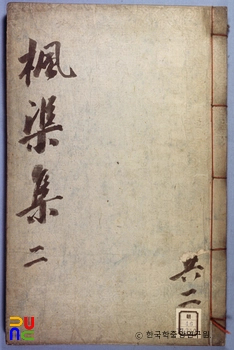 楓渠集 二
共二
© 한국학중앙연구원